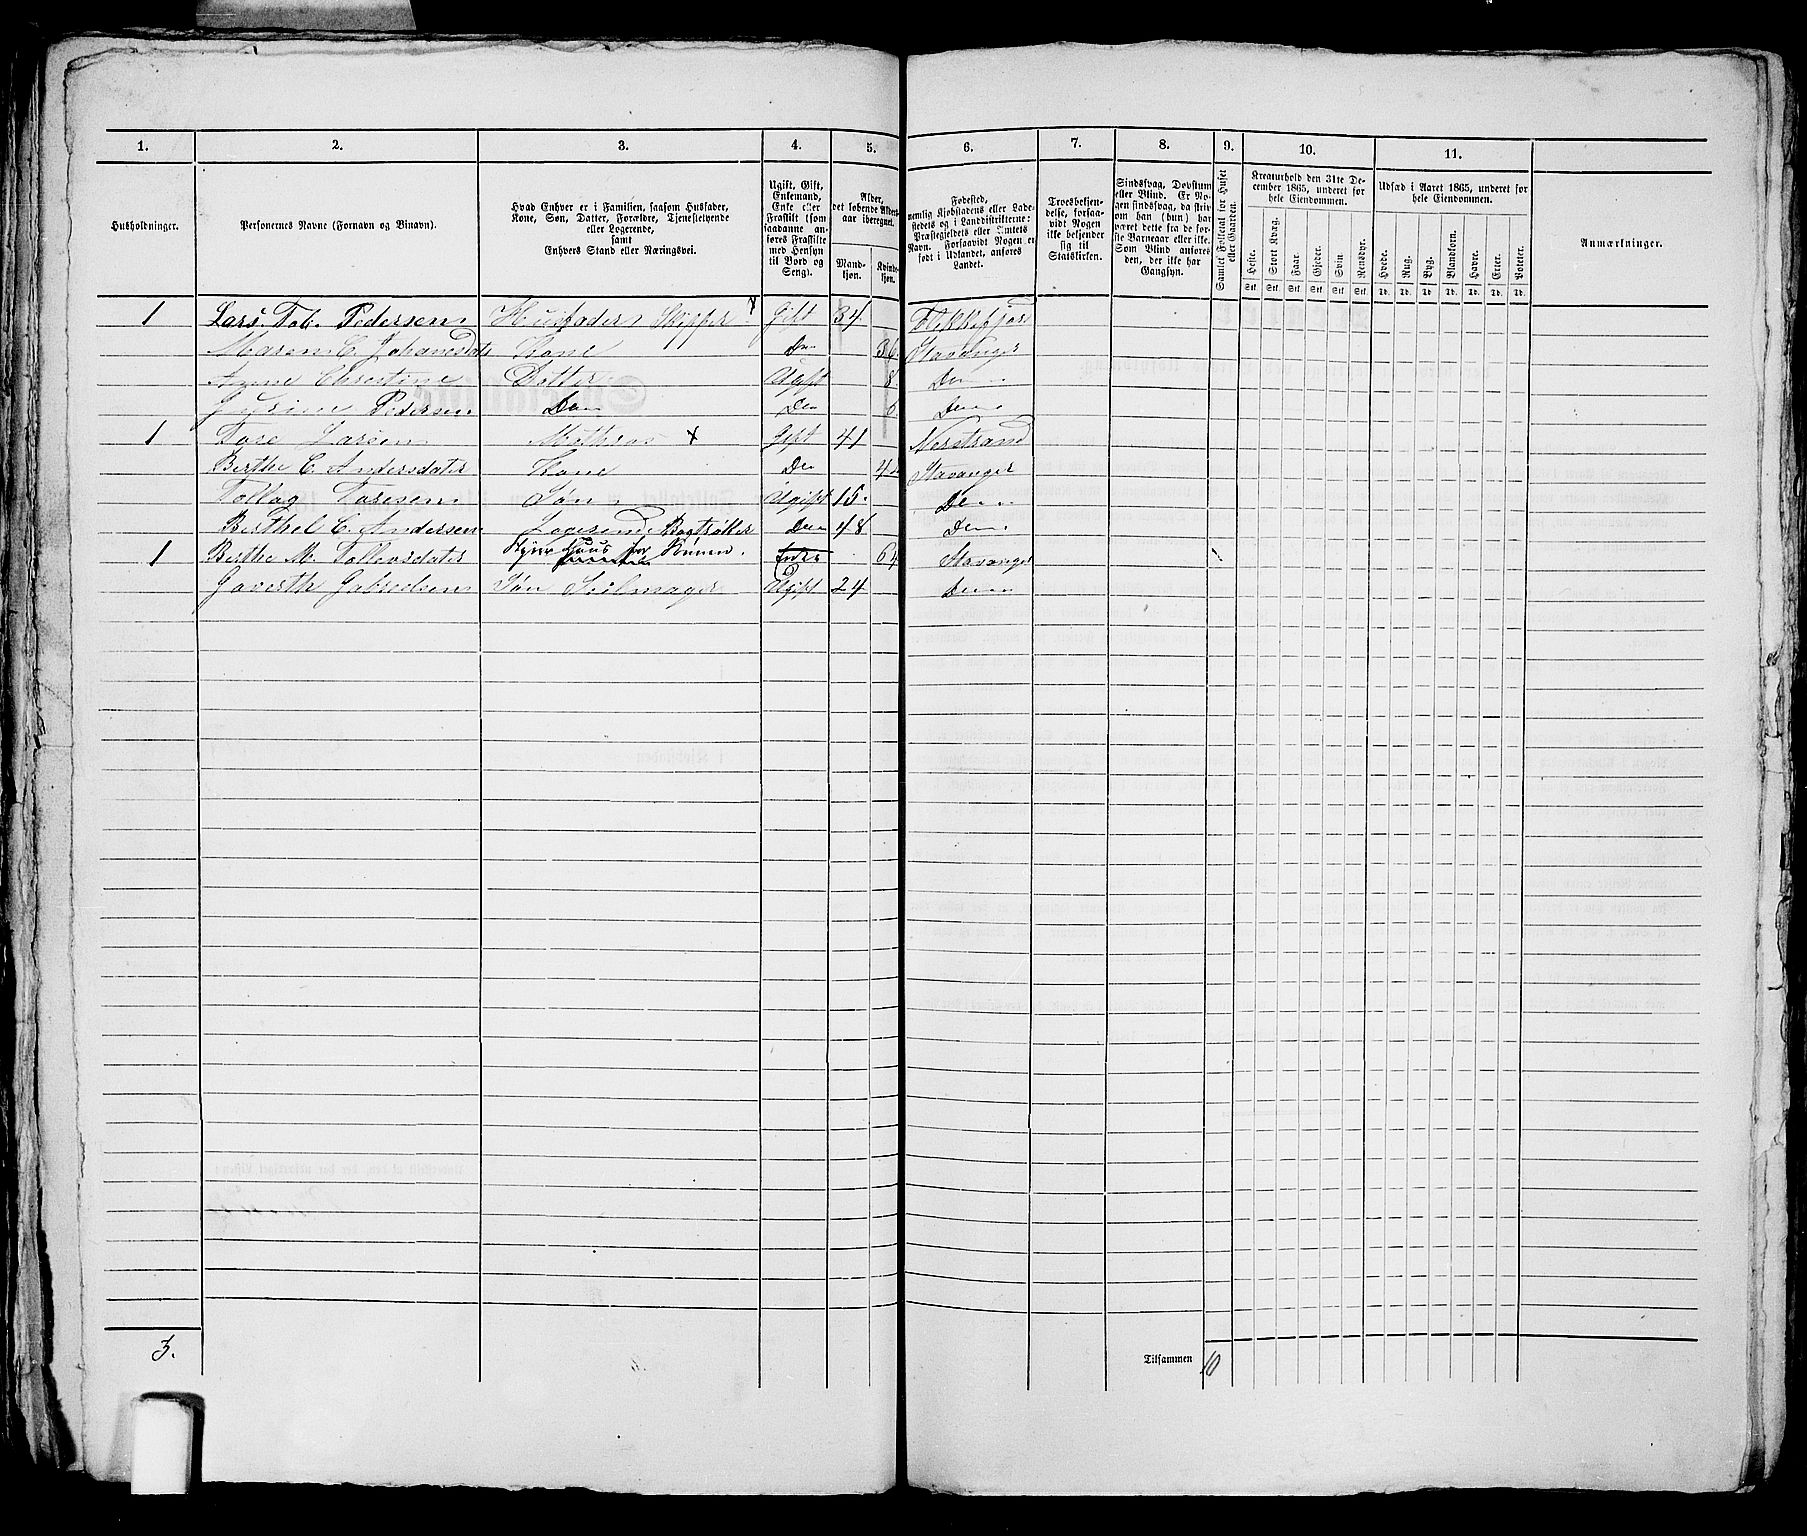 1. 2. 3. 4. 5. 6. 7. 8. 9. 10. 11.
Husholdninger.
Personernes Navne (Fornavn og Binavn).
Hvad Enhver er i Familien, saasom Husfader,
Kone, Søn, Datter, Forældre, Tjenestetyende
eller Logerende,
samt
Enhvers Stand eller Næringsvei.
Ugift, Gift,
Enkemand,
Enke eller
Fraskilt (som
saadanne an-
føres Fraskilte
med Hensyn
til Bord og
Seng).
Alder,
det løbende Alders-
aar iberegnet.
Mand-
kjøn.
Kvinde-
kjøn.
Fødested,
nemlig Kjøbstadens eller Lade-
stedets og i Landdistrikterne:
Præstegjeldets eller Amtets
Navn. Forsaavidt Nogen er
født i Udlandet, anføres
Landet.
Troesbekjen-
delse, forsaa-
vidt Nogen
ikke bekjender
sig til
Statskirken.
Sindssvag, Døvstum
eller Blind. Er No-
gen sindssvag, da skriv
om han (hun) har
været dette fra de før-
ste Barneaar eller ikke.
Som Blind anføres
den, der ikke har
Gangsyn.
Samlet Folketal for Huset
eller Gaarden.
Kreaturhold den 31te De-
cember 1865, underet for
hele Eiendommen.
Heste. Stort Kvæg. Faar. Gjeder. Svin Rensdyr.
Stk. Stk. Stk. Stk. Stk. Stk.
Udsæd i Aaret 1865, underet for
hele Eiendommen.
Hvede. Rug. Byg. Blandkorn. Havre. Erter. Poteter.
Td. Td. Td. Td. Td. Td. Td.
Anmærkninger.
1 Lars Tob. Pedersen Husfader Skipper Gift 34 Flekkefjord
Maren C. Johanesdater Kone Do 36 Stavanger
Anne Chrestine Dotter Ugift 8 Do
Gurine Pedersen Do Do 6 Do
1 Tore Larsen Mathros Gift 41 Nerstrand
Berthe C. Andersdater Kone Do Stavanger
Tollag Toresen Søn Ugift 15. Do
Berthel C. Andersen Logerende Bogtrøkker Do 48 Do
1 Berthe M. Tollevsdater Huus for Enke 64 Stavanger
Goverth Gabrielsen Søn Seilmager Ugift 24 Do
3.
Tilsammen 10